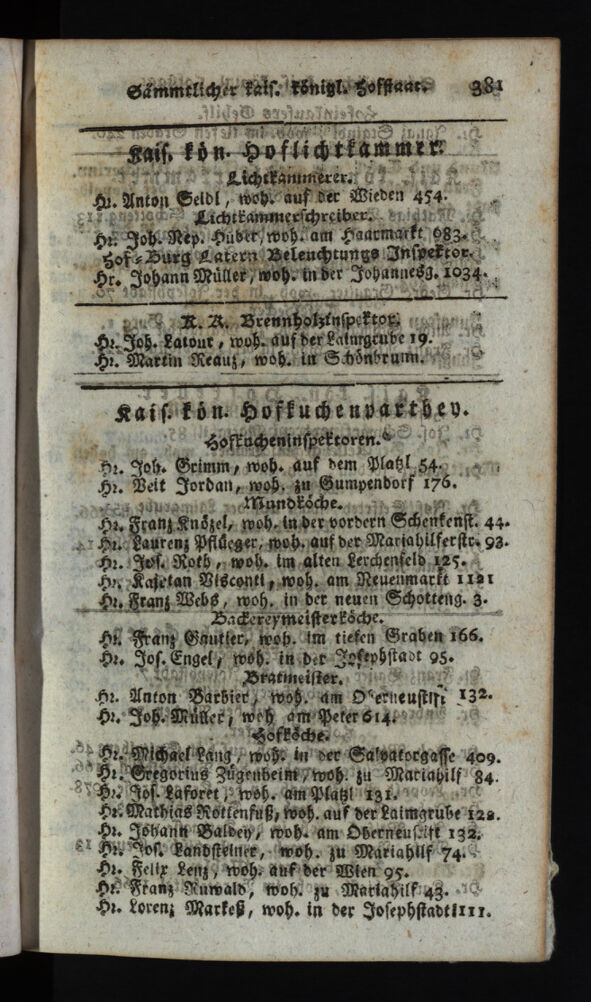 Sämmtlicher kais. königl. Hofstaat. 381
Kais. kön. Hoflichtkammer.
Lichtkammerer.
Hr. Anton Seidl, woh. auf der Wieden 454.
Lichtkammerschreiber.
Hr. Joh. Nep. Huber, woh. am Haarmarkt 683.
Hof-Burg Latern Beleuchtungs Inspektor.
Hr. Johann Müller, woh. in der Johannesg. 1034.
K. K. Brennholzinspektor.
Hr. Joh. Latour, woh. auf der Laimgrube 19.
Hr. Martin Reauz, woh. in Schönbrunn.
Kais. kön. Hofkuchenparthey.
Hofkucheninspektoren.
Hr. Joh. Grimm, woh. auf dem Platzl 54.
Hr. Veit Jordan, woh. zu Gumpendorf 176.
Mundköche.
Hr. Franz Knözel, woh. in der vordern Schenkenst. 44.
Hr. Laurenz Pflüeger, woh. auf der Mariahilferstr. 93.
Hr. Jos. Roth, woh. im alten Lerchenfeld 125.
Hr. Kajetan Visconti, woh. am Neuenmarkt 1121
Hr. Franz Webs, woh. in der neuen Schotteng. 3.
Backereymeisterköche.
Hr. Franz Gautier, woh. im tiefen Graben 166.
Hr. Jos. Engel, woh. in der Josephstadt 95.
Bratmeister.
Hr. Anton Barbier, woh. am Oberneustift 132.
Hr. Joh. Müller, woh am Peter 614.
Hofköche.
Hr. Michael Lang, woh. in der Salvatorgasse 409.
Hr. Gregorius Zügenheim, woh. zu Mariahilf 84.
Hr. Jos. Laforet, woh. am Platzl 131.
Hr. Mathias Rottenfuß, woh. auf der Laimgrube 122.
Hr. Johann Baldey, woh. am Oberneustift 132.
Hr. Jos. Landsteiner, woh. zu Mariahilf 74.
Hr. Felix Lenz, woh. auf der Wien 95.
Hr. Franz Ruwald, woh. zu Mariahilf 43.
Hr. Lorenz Markeß, woh. in der Josephstadt 111.